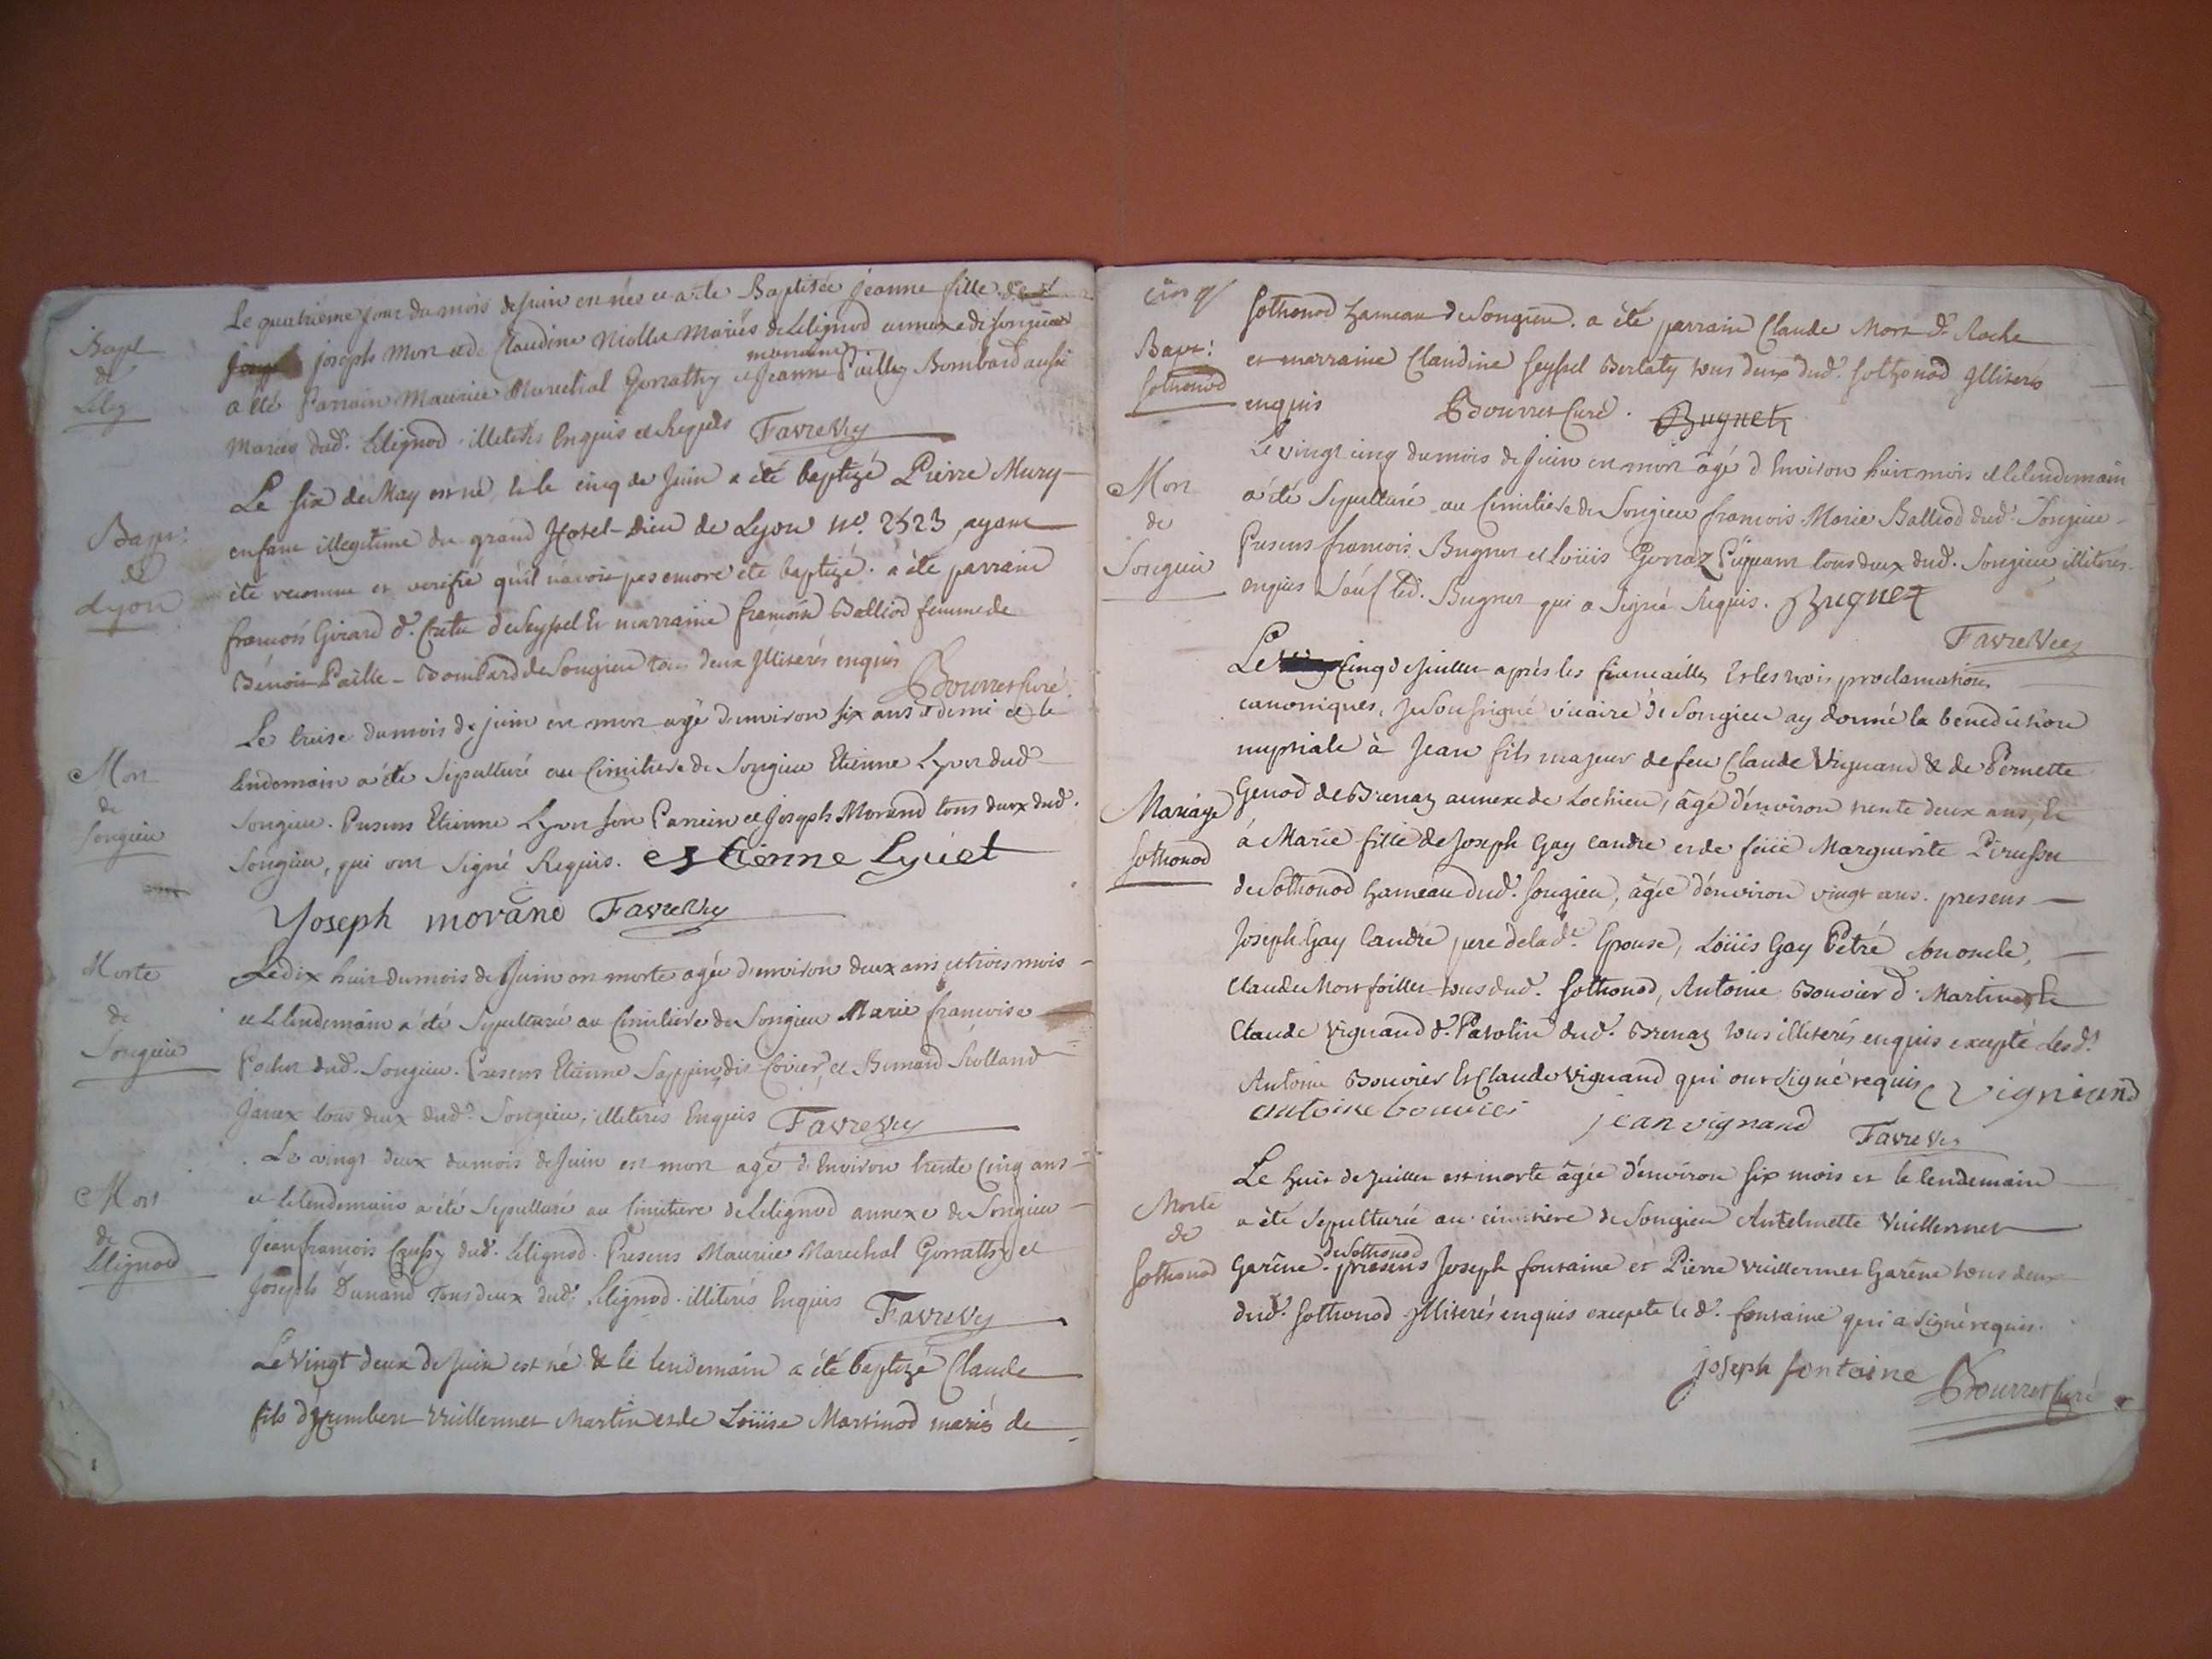 Bapt
de
Lilig
Le quatrieme jour du mois de juin est née et a été Baptisée jeanne fille de
joseph Mort et de Claudine Niollet Mariés de Lilignod annexe de songieu
a été Parrain Maurice Marechal Gorrathy et marraine jeanne Pailley Bombard aussi
Mariés dud. Lilignod illiterés Enquis et Requis FavreVic
Bapt:
de
Lyon
Le six de May est né et le cinq de Juin a été baptizé Pierre Mury
enfant illegitime du grand Hotel-Dieu de Lyon no. 2523, ayant
été reconnu et verifié qu'il n'avoit pas encore été baptizé. a été parrain
francois Girard d. de Seyssel Et marraine francoise Balliod femme de
Benoit Paille-Bombard de Songieu tous deux Illiterés enquis
Bourret Curé
Mort
de
Songieu
Le treise du mois de juin est mort agé d'environ six ans et demi et le
lendemain a été sépulturé au Cimitiere de Songieu Etienne Lyvet dud.
Songieu. Presens Etienne Lyvet son Parrein et Joseph Morand tous deux dud.
Songieu, qui ont signé Requis. estienne Lyvet
Yoseph morand FavreVic
Morte
de
Songieu
Le dix huit du mois de Juin est morte agée d'environ deux ans et trois mois
et le lendemain a été sepulturée au Cimitiere de Songieu Marie francoise
Pochet dud. Songieu. Presens Etienne Sappin dit Coirer, et Bernard Rolland
Janex tous deux dud. Songieu, illiterés Enquis FavreVic
Mort
de
Lilignod
Le vingt deux du mois de Juin est mort agé d'Environ trente Cinq ans
et le lendemain a été sepulturé au Cimitiere de Lilignod annexe de Songieu
Jean francois Crussy dud. Lilignod. Presens Maurice Marechal Gorrathy et
Joseph Dunand tous deux dud. Lilignod. illiterés Enquis FavreVic
Le Vingt deux de Juin est né & le lendemain a été baptizé Claude
fils d'humbert Vuillermet Martin et de Loüise Martinod mariés de
cinq
Bapt:
Sothonod
Sothonod hameau de Songieu. a été parrain Claude Mort dt. Roche
et marraine Claudine Seyssel Berlaty tous deux dud. Sothonod Illiterés
enquis Bourret Curé. Bugnet
Mort
de
Songieu
Le vingt cinq du mois de Juin est mort âgé d'Environ huit mois et le lendemain
a été Sepulturé au Cimitiere de Songieu francois Marie Balliod dud. Songieu
Presens francois Bugnet et Loüis Gorraz tous deux dud. Songieu, illiterés
enquis Sauf led. Bugnet qui a signé Requis. Bugnet
FavreVic
Mariage
Sothonod
Le Cinq de Juillet après les fiancailles Et les trois proclamations
canoniques, Je soussigné vicaire de Songieu ay donné la benediction
nuptiale à Jean fils majeur de feu Claude Vignand & de Pernette
Genod de Brenaz annexe de Lochieu, âgé d'environ trente deux ans, Et
à Marie fille de Joseph Gay Candre et de feüe Marguerite
de Sothonod hameau dud. Songieu, âgée d'environ vingt ans. presens
Joseph Gay Candre pere de lad. Epouse, Loüis Gay Pétré son oncle,
Claude Mort foillet tous dud. Sothonod, Antoine Bouvier d. Martin et
Claude Vignand d. Pavolin dud. Brenaz tous illiterés enquis excepté lesd.
Antoine Bouvier Et Claude Vignand qui ont signé requis C Vigniand
antoine bouvier jean vignand FavreVic
Morte
de
Sothonod
Le huit de Juillet est morte âgée d'environ six mois et le lendemain
a été sepulturée au cimitiere de Songieu Antelmette Vuillermet
Garêne de Sothonod. presens Joseph fontaine et Pierre Vuillermet Garêne tous deux
dud. Sothonod Illiterés enquis excepté le d. fontaine qui a signé requis.
joseph fontaine Bourret Curé